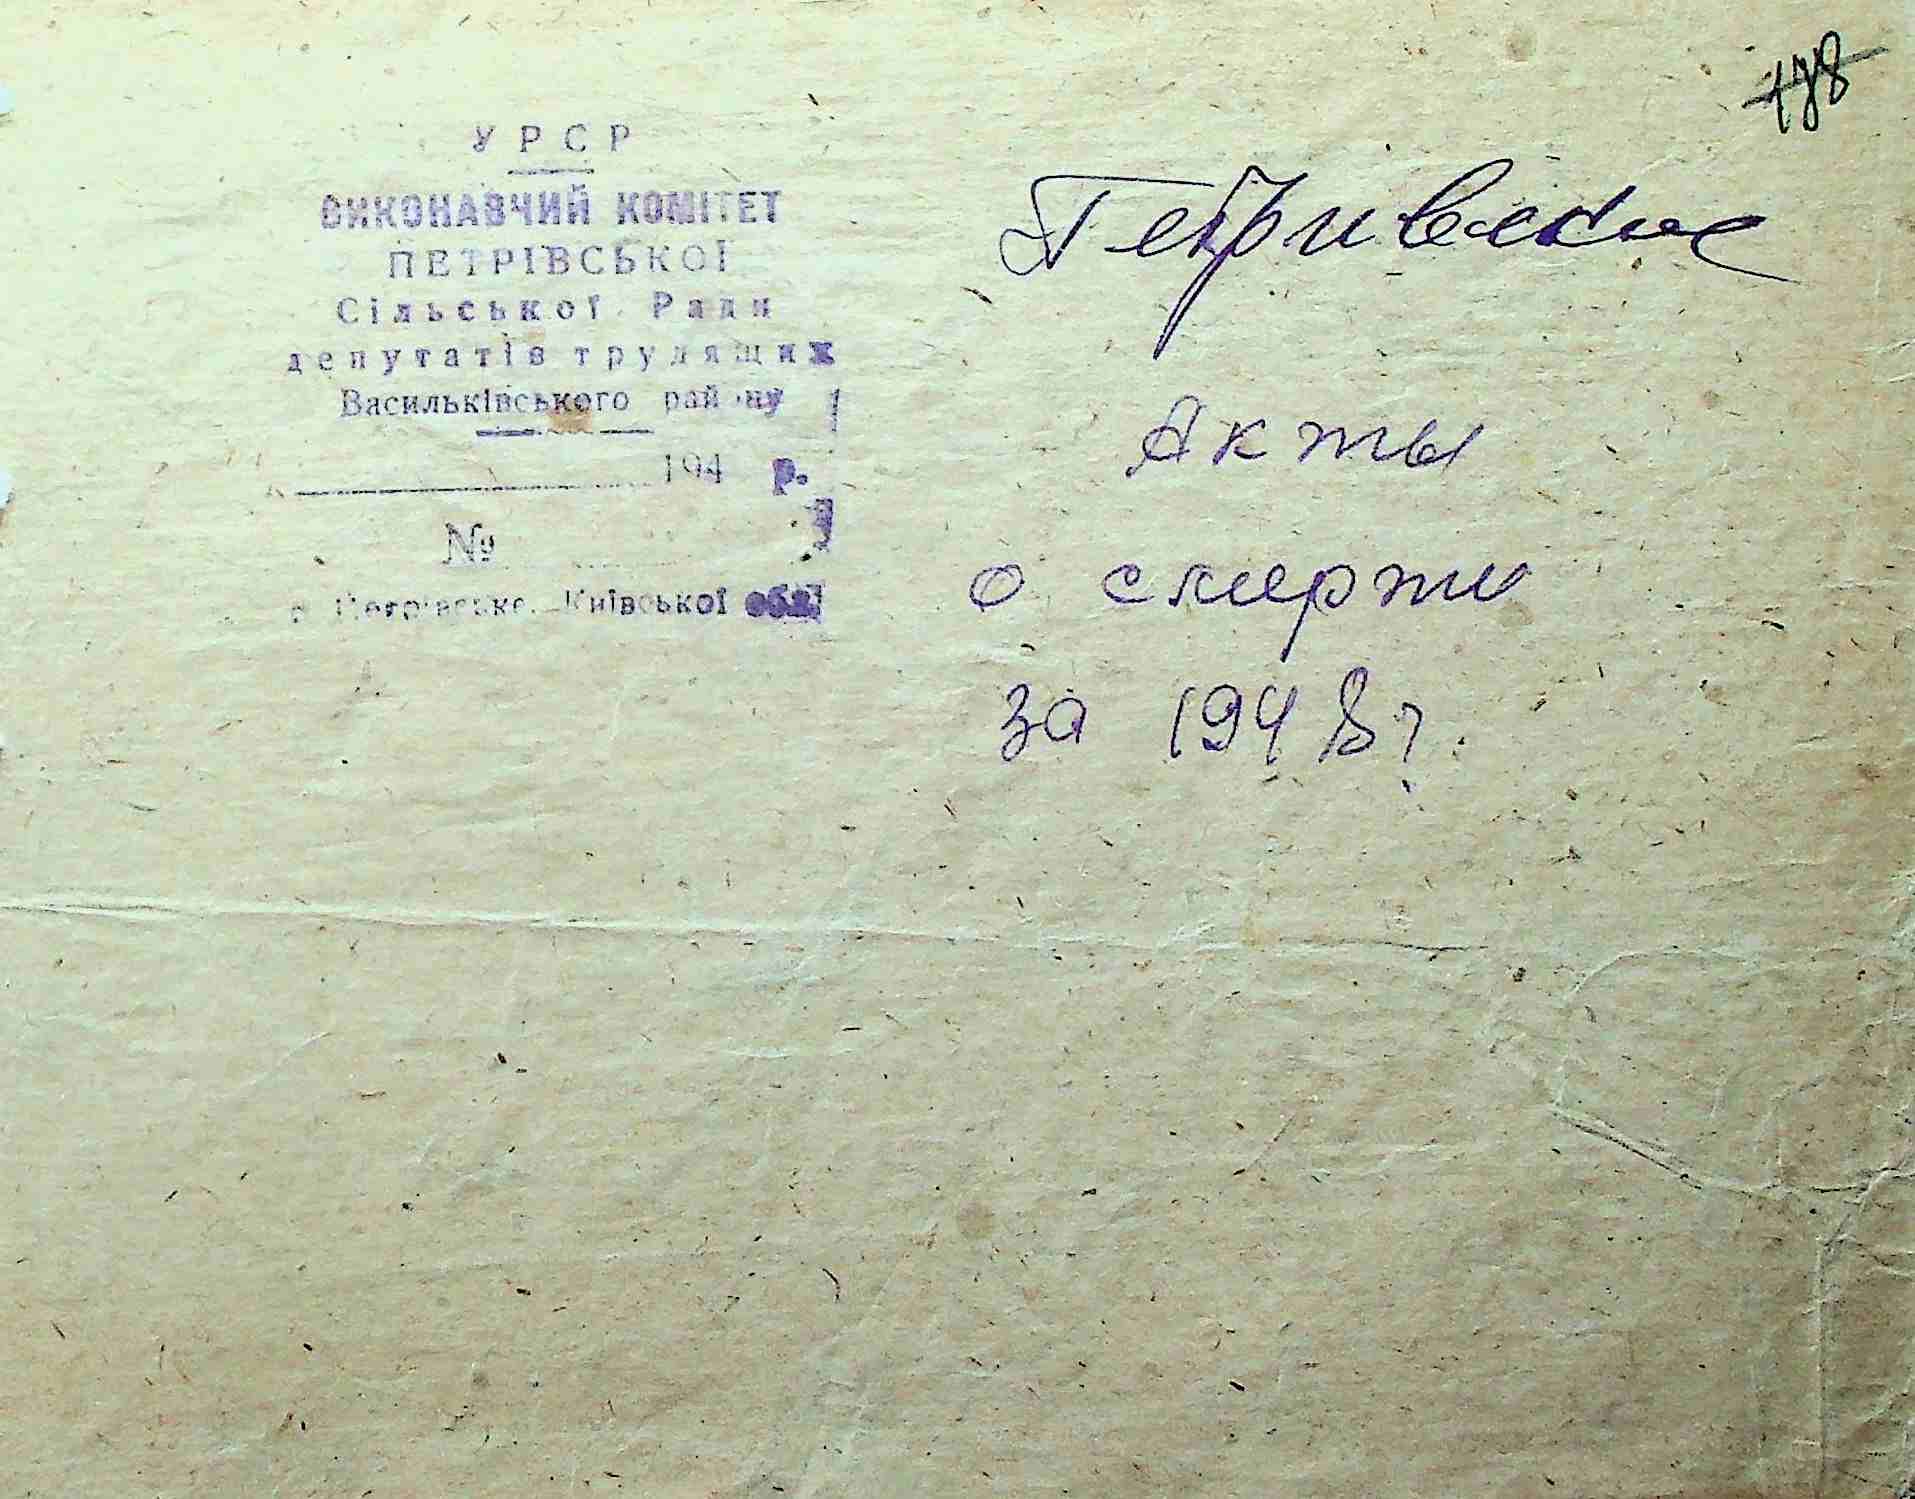 178
УРСР
ВИКОНАВЧИЙ КОМІТЕТ
ПЕТРІВСЬКОЇ
Сільської Ради
депутатів трудящих
Васильківського району
194 р.
№
с. Петрівське, Київської обл.
Петривское
Акты
о смерти
за 1948 г.